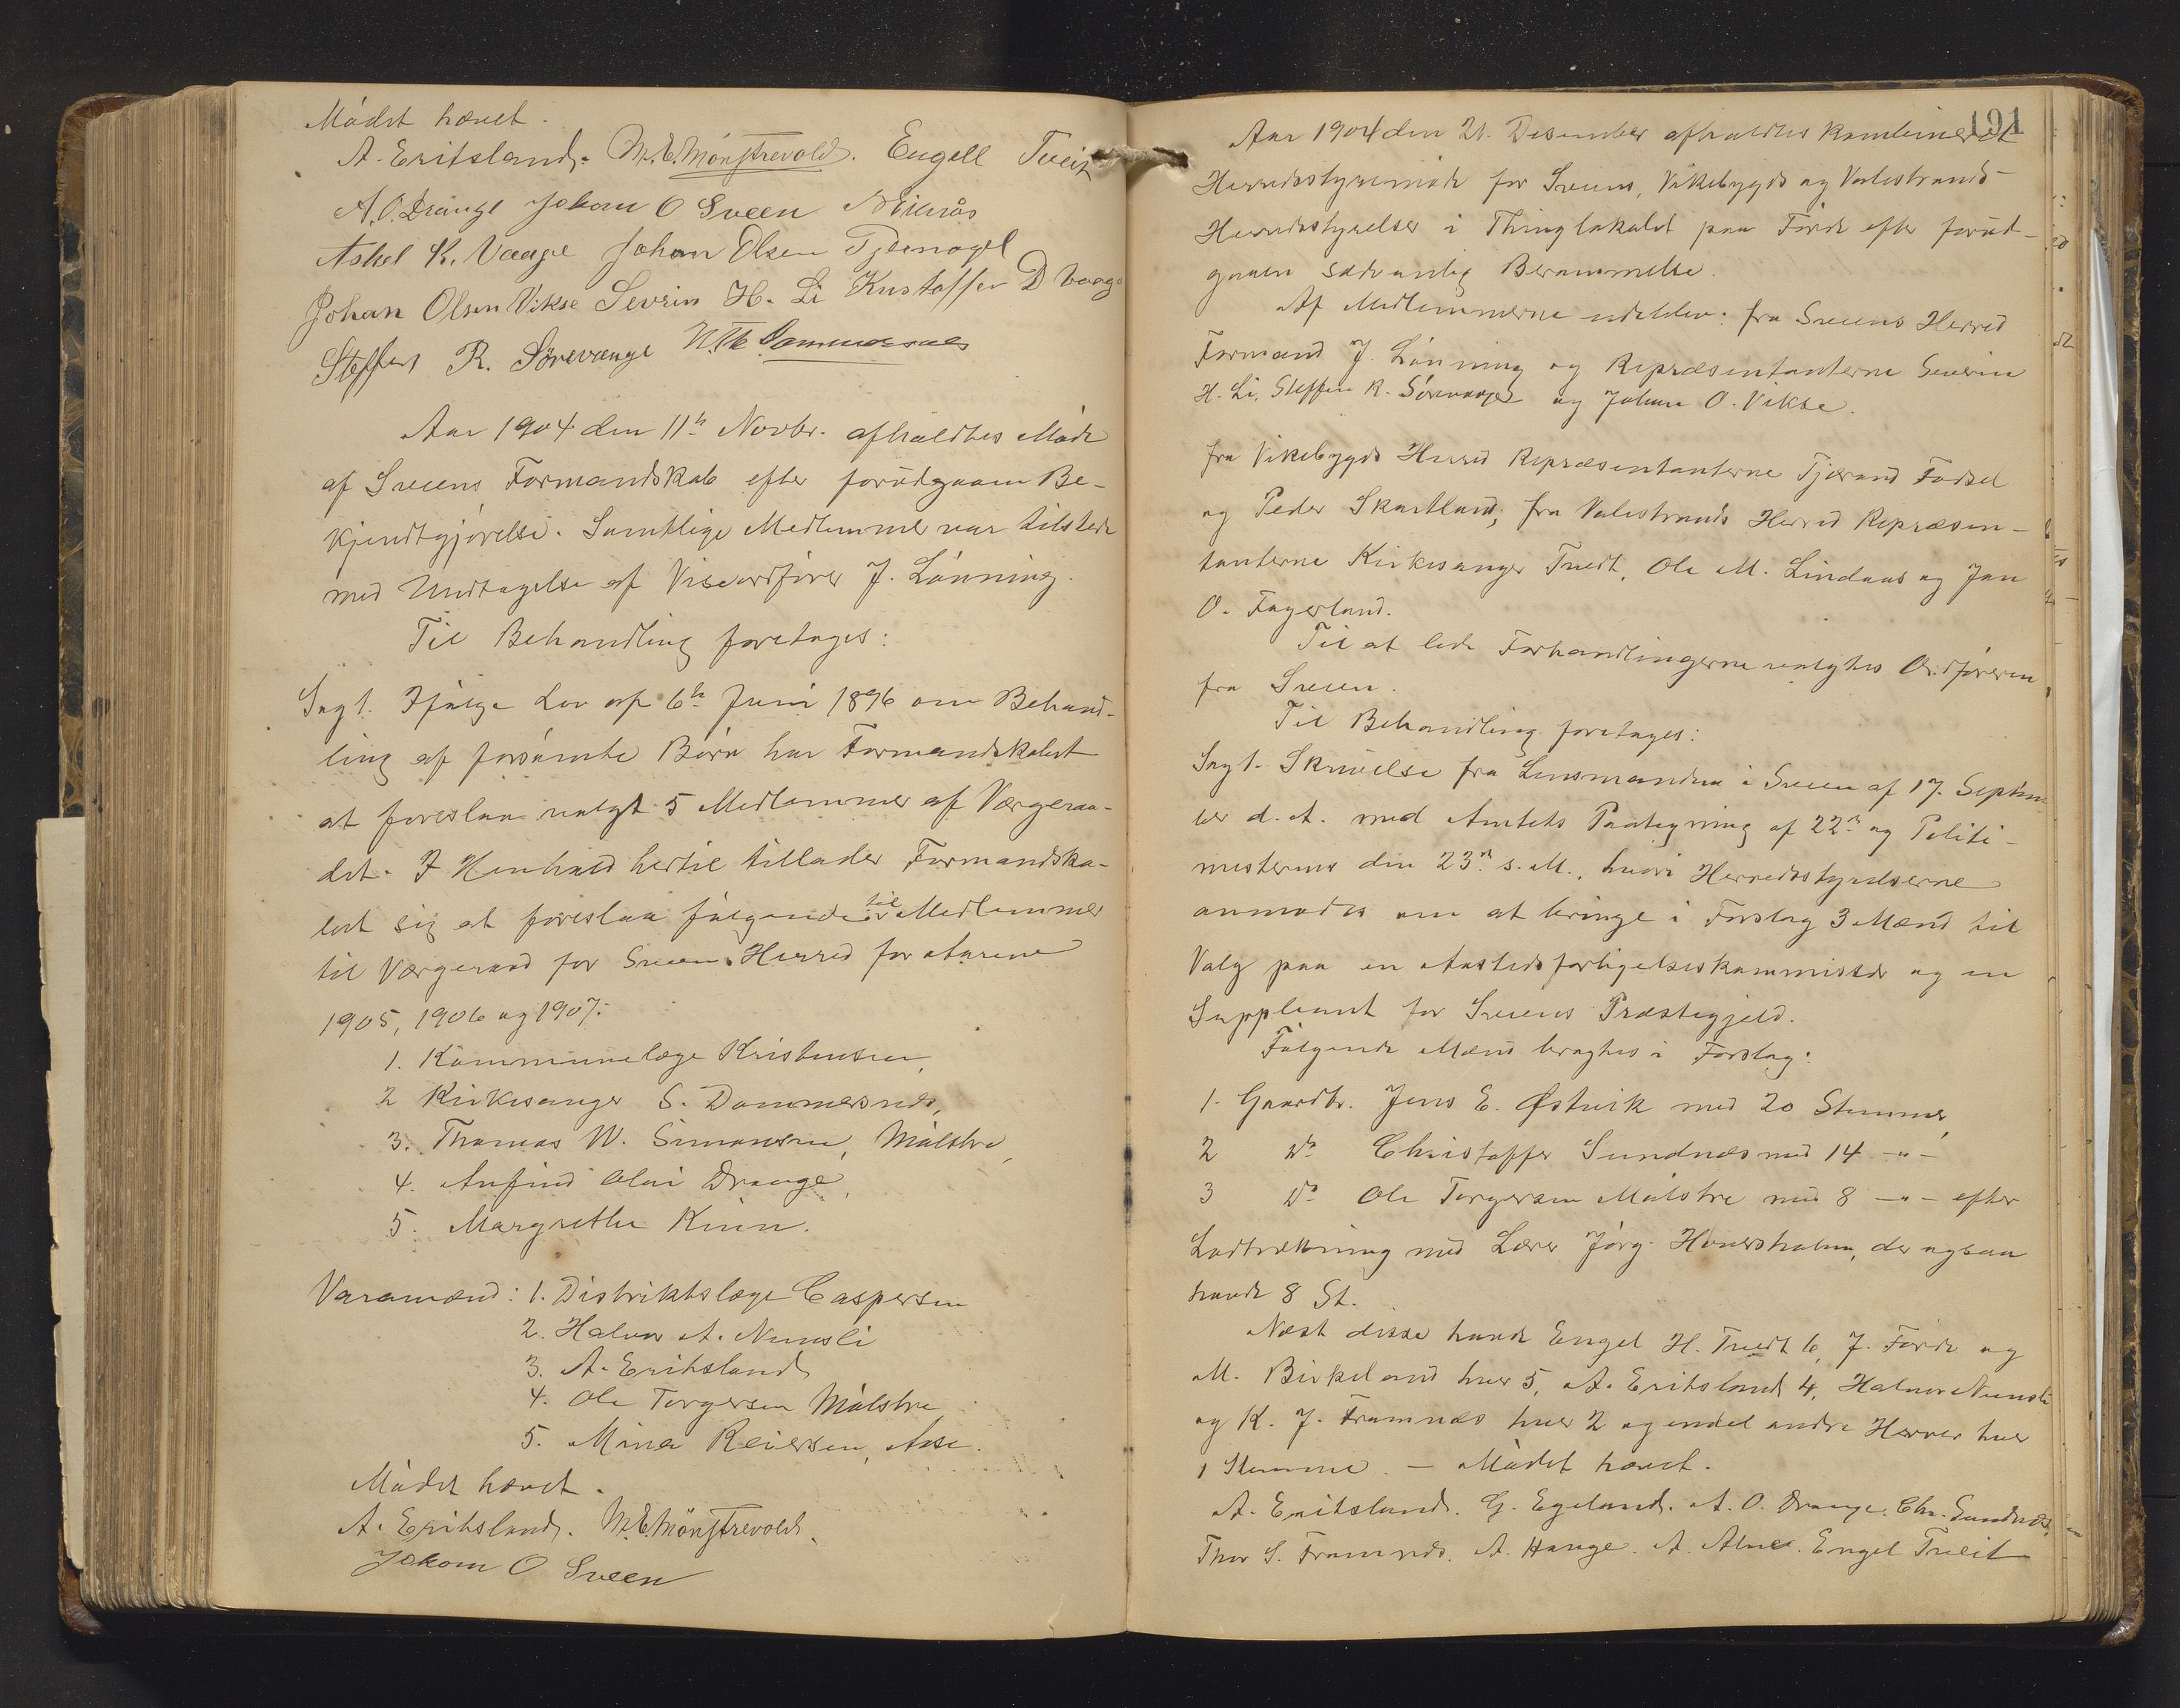 Mödet hævet.
A. Eritsland. M. E. Mönstrevold. Engell Tveit
A. O. Drange Johan O Sveen
Askel K. Vaage Johan Olsen Tjernagel
Johan Olsen Vikse Sevrin H. Li Kristoffer D Vaage
Steffen R. Sörevange
Aar 1904 den 11te Novbr. afholdtes Möde
af Sveens Formandskab efter forudgaaen Be-
kjendtgjörelse. Samtlige Medlemmer var tilstede
med Undtagelse af Viseordförer J. Lönning.
Til Behandling foretages:
Sag 1. Ifölge Lov af 6te Juni 1896 om Behand-
ling af forsömte Börn har Formandskabet
at foreslaa valgt 5 Medlemmer af Vergeraa-
det. I Henhold hertil tillader Formandska-
bet sig at foreslaa fölgende til Medlemmer
til Vergeraad for Sveen Herred for Aarene
1905, 1906 og 1907:
1. Kommunelæge Kristensen,
2 Kirkesanger S. Dommersnes,
3. Thomas W. Simonsen, Mölstre,
4. Anfind Olai Drange,
5. Margrethe Kinn.
Varamænd: 1. Distriktslæge Caspersen
2. Halvor A. Nernsli
3. A. Eritsland
4. Ole Torgersen Mölstre
5. Mina Reiersen, Aase.
Mödet hævet.
A. Eritsland. M. E. Mönstrevold.
Johan O Sveen
191
Aar 1904 den 21. Desember afholdtes kombineret
Herredsstyremöde for Sveens, Vikebygds og Valestrands
Herredsstyrelser i Thinglokalet paa Förde efter forud-
gaaen sedvanlig Berammelse.
Af Medlemmerne udeblev: fra Sveens Herred
Formand J. Lönning og Repræsentanterne Severin
H. Li, Steffen R. Sörevange og Johan O. Vikse.
fra Vikebygds Herred Repræsentanterne Tjerand
og Peder Skartland; fra Valestrands Herred Repræsen-
tanterne Kirkesanger Tvedt, Ole M. Lindaas og Jan
O. Fagerland.
Til at lede Forhandlingerne valgtes Ordföreren
fra Sveen.
Til Behandling foretages:
Sag 1. Skrivelse fra Lensmanden i Sveen af 17. Septem
ber d. A. med Amtets Paategning af 22n og Politi-
mesterens den 23n s. M., hvori Herredsstyrelserne
anmodes om at bringe i Forslag 3 Mænd til
Valg paa en Aastedsforligelseskommissær og en
Suppleant for Sveens Præstegjeld.
Fölgende Mænd bragtes i Forslag:
1. Gaardbr. Jens E. Østvik med 20 Stemmer,
2 Do Christoffer Sundnes med 14 -"-
3 Do Ole Torgersen Mölstre med 8 -"- efter
Lodtrækning med Lærer Jörg. Hovershalm, der ogsaa
havde 8 St.
Næst disse havde Engel H. Tvedt 6, J. Förde og
M. Birkeland hver 5, A. Eritsland 4, Halvor Nernsli
og K. J. Framnæs hver 2 og endel andre Herrer hver
1 Stemme. — Mödet hævet.
A. Eritsland. G. Egeland. A. O. Drange. Chr. Sundnæs.
Thor S. Framnæs. A. Hauge. A. Engel Tveit